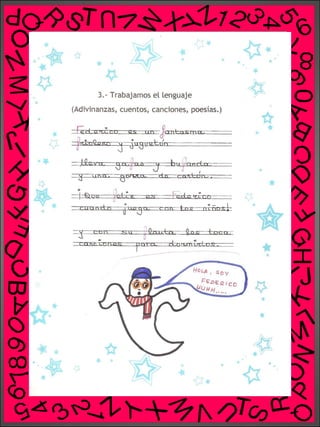 3.- Trabajamos el lenguaje
(Adivinanzas, cuentos, canciones, poesías.)
Federico es un fantasma
friolero y juguetón
lleva gafas y bufanda
y una gorra de cartón.
¡Que feliz es Federico
cuando juega con los niños!
y con su flauta les toca
canciones para dormirlos.
HOLA, SOY
FEDERICO
UUHH.....